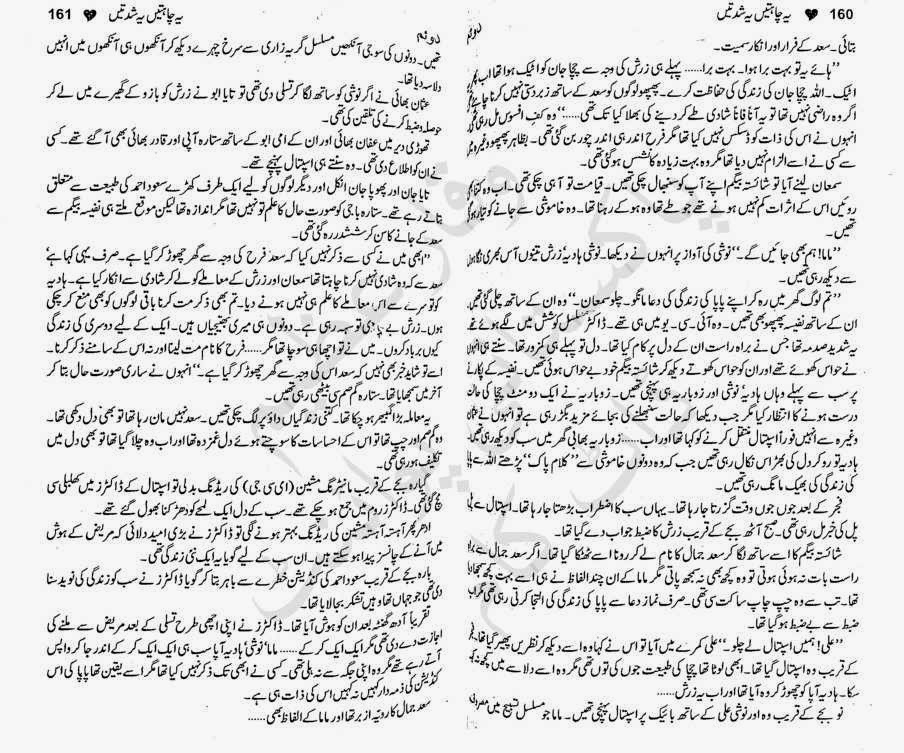 160 یہ چاہتیں یہ شدتیں
بتائی۔ سعد کے فرار اور انکار سمیت۔
”ہائے یہ تو بہت برا ہوا۔ بہت برا...... پہلے ہی زرش کی وجہ سے چچا جان کو اٹیک ہوا تھا اب
اٹیک۔ اللہ چچا جان کی زندگی کی حفاظت کرے۔ پھپھو لوگوں کو سعد کے ساتھ زبردستی نہیں کرنا چاہیے
اگر وہ راضی نہیں تھا تو یہ آناً فاناً شادی طے کر دینے کی بھلا کیا تک تھی......“ وہ کف افسوس مل رہی
انہوں نے اس کی ذات کو ڈسکس نہیں کیا تھا مگر فرح اندر ہی اندر چور بن گئی تھی۔ بظاہر پھپھو وغیرہ
سے کسی نے اسے الزام نہیں دیا تھا مگر وہ بہت زیادہ کانشس ہو گئی تھی۔
سمعان لینے آیا تو شائستہ بیگم اپنے آپ کو سنبھال چکی تھیں۔ قیامت تو آ ہی چکی تھی۔ اب وہ
روئیں اس کے اثرات کم نہیں ہونے تھے جو طے تھا وہ ہو کے رہنا تھا۔ وہ خاموشی سے جانے کو تیار
تھیں۔
”ماما! ہم بھی جائیں گے۔“ نوشی کی آواز پر انہوں نے دیکھا۔ نوشی ہادیہ زرش تینوں آس بھری
سے دیکھ رہی تھیں۔
”تم لوگ گھر میں رہ کر اپنے پاپا کی زندگی کی دعا مانگو۔ چلو سمعان۔“ وہ ان کے ساتھ چلی گئی تھیں
ان کے ساتھ نفیسہ پھپھو بھی تھیں۔ وہ آئی۔ سی۔ یو میں ہی تھے۔ ڈاکٹر مسلسل کوشش میں لگے ہوئے
یہ شدید صدمہ تھا جس نے براہ راست ان کے دل پر کام کیا تھا۔ دل تو پہلے ہی کمزور تھا۔ سنتے ہی انہوں
نے حواس کھوئے تھے اور ان کو حواس کھوتے دیکھ کر شائستہ بیگم خود بے حواس ہو گئی تھیں۔ نفیسہ کے پکارنے
پر سب سے پہلے وہاں ہادیہ نوشی اور زوباریہ ہی پہنچی تھیں۔ زوباریہ نے ایک دو منٹ چچا کی
درست ہونے کا انتظار کیا مگر جب دیکھا کہ حالت سنبھلنے کی بجائے مزید بگڑ رہی ہے تو انہوں نے
وغیرہ سے انہیں فوراً اسپتال منتقل کرنے کو کہا تھا اور اب...... زوباریہ بھابی گھر میں سب کو دیکھ رہی تھیں
ہادیہ تو رو کر دل کی بھڑاس نکال رہی تھیں جب کہ وہ دونوں خاموشی سے ”کلام پاک“ پڑھتے اللہ سے
کی زندگی کی بھیک مانگ رہی تھیں۔
فجر کے بعد جوں جوں وقت گزرتا جا رہا تھا۔ یہاں سب کا اضطراب بڑھتا جا رہا تھا۔ اسپتال سے
پل کی خبر مل رہی تھی۔ صبح آٹھ بجے کے قریب زرش کا ضبط جواب دے گیا تھا۔
شائستہ بیگم کا اسے ساتھ لگا کر سعد جمال کا نام لے کر رونا اسے ٹھٹکا گیا تھا۔ اگر سعد جمال سے
راست بات نہ ہوئی ہوتی تو وہ کچھ بھی نہ سمجھ پاتی مگر ماما کے ان چند الفاظ نے ہی اسے بہت کچھ سمجھا
تھا۔ تب سے وہ چپ چاپ ساکت سی تھی۔ صرف نماز دعا سے پاپا کی زندگی کی التجا کرتی رہی تھی مگر
ضبط سے بے ضبط ہو گیا تھا۔
”علی! ہمیں اسپتال لے چلو۔“ علی کمرے میں آیا تو اس نے کہا وہ اسے دیکھ کر نظریں پھیر گیا تھا۔
کے قریب وہ اسپتال گیا تھا۔ ابھی لوٹا تھا چچا کی طبیعت جوں کی توں تھی مگر وہ اسے دلاسے میں کچھ
سکا۔ ہادیہ آپا کو چھوڑ کر وہ آیا تھا اور اب یہ زرش......
نو بجے کے قریب وہ اور نوشی علی کے ساتھ بائیک پر اسپتال پہنچی تھیں۔ ماما جو مسلسل تسبیح میں
161 یہ چاہتیں یہ شدتیں
تھیں۔ دونوں کی سوجی آنکھیں مسلسل گریہ زاری سے سرخ چہرے دیکھ کر آنکھوں ہی آنکھوں میں انہیں
دلاسہ دیا تھا۔
عثمان بھائی نے اگر نوشی کو ساتھ لگا کر تسلی دی تھی تو تایا ابو نے زرش کو بازو کے گھیرے میں لے کر
حوصلہ و ضبط کرنے کی تلقین کی تھی۔
تھوڑی دیر میں عفان بھائی اور ان کے امی ابو کے ساتھ ستارہ آپی اور قادر بھائی بھی آ گئے تھے۔ کسی
نے ان کو اطلاع دی تھی۔ وہ سنتے ہی اسپتال پہنچے تھے۔
تایا جان اور پھوپا جان انکل اور دیگر لوگوں کو لیے ایک طرف کھڑے سعود احمد کی طبیعت سے متعلق
بتاتے رہے تھے۔ ستارہ باجی کو صورت حال کا علم تو نہیں تھا مگر اندازہ تھا لیکن موقع ملتے ہی نفیسہ بیگم سے
سعد کے جانے کا سن کر ششدر رہ گئی تھی۔
”ابھی میں نے کسی سے ذکر نہیں کیا کہ سعد فرح کی وجہ سے گھر چھوڑ کر گیا ہے۔ صرف یہی کہا ہے
سعد سے کہ وہ شادی نہیں کرنا چاہتا تھا سمعان اور زرش کے معاملے کو لے کر شادی سے انکار کیا ہے۔ ہادیہ
کو تو سرے سے اس معاملے کا علم ہی نہیں ہونے دیا۔ تم بھی ذکر مت کرنا باقی لوگوں کو بھی منع کر چکی
ہوں۔ زرش بے چاری تو سہہ رہی ہے۔ دونوں ہی میری بھتیجیاں ہیں۔ ایک کے لیے دوسری کی زندگی
کیوں برباد کروں۔ میں نے تو اچھا ہی سوچا تھا مگر...... فرح کا نام مت لینا اور نہ اس کے سامنے ذکر کرنا۔
اسے تو شاید خبر بھی نہیں کہ سعد اس کی وجہ سے گھر چھوڑ کر گیا ہے۔“ انہوں نے ساری صورت حال بتا کر
آخر میں سمجھایا تھا۔ ستارہ گم صم سی بیٹھی رہی تھیں۔
یہ معاملہ بڑا گمبھیر ہو چکا تھا۔ کتنی زندگیاں داؤ پر لگ چکی تھیں۔ سعد نہیں مان رہا تھا تو بھی دل دکھی تھا۔
وہ گم صم اور چپ تھا تو اس کے احساسات کا سوچتے ہوئے دل غمزدہ تھا اور اب وہ چلا گیا تھا تو بھی دل میں
تکلیف ہو رہی تھی۔
گیارہ بجے کے قریب مانیٹرنگ مشین (ای سی جی) کی ریڈنگ بدلی تو اسپتال کے ڈاکٹرز میں کھلبلی سی
مچ گئی تھی۔ ڈاکٹرز روم میں جمع ہو چکے تھے۔ سب کے دل ایک لمحے کو دھڑکنا بھول گئے تھے۔
ادھر پھر آہستہ آہستہ مشین کی ریڈنگ بہتر ہونے لگی تو ڈاکٹرز نے بڑی امید دلائی کہ مریض کے ہوش
میں آنے کے چانسز پیدا ہو سکتے ہیں۔ ان سب کے لیے گویا یہ ایک نئی زندگی تھی۔
بارہ بجے کے قریب سعود احمد کی کنڈیشن خطرے سے باہر بتا کر گویا ڈاکٹرز نے سب کو زندگی کی نوید سنا
دی تھی جو جہاں تھا وہیں تشکر بجا لایا تھا۔
تقریباً آدھ گھنٹہ بعد ان کو ہوش آیا تھا۔ ڈاکٹرز نے اپنی اچھی طرح تسلی کے بعد مریض سے ملنے کی
اجازت دے دی تھی مگر ایک ایک کر کے...... ماما نوشی ہادیہ آپا سب ہی ایک ایک کر کے اندر جا کر واپس
آتے رہے تھے مگر وہ اپنی جگہ سے نہ ہلی تھی۔ کسی نے ابھی تک ذکر نہیں کیا تھا مگر اسے یقین تھا پاپا کی اس
کنڈیشن کی ذمہ دار کہیں نہ کہیں اس کی ذات ہی ہے۔
سعد جمال کا رویہ ازبر تھا اور ماما کے الفاظ بھی......